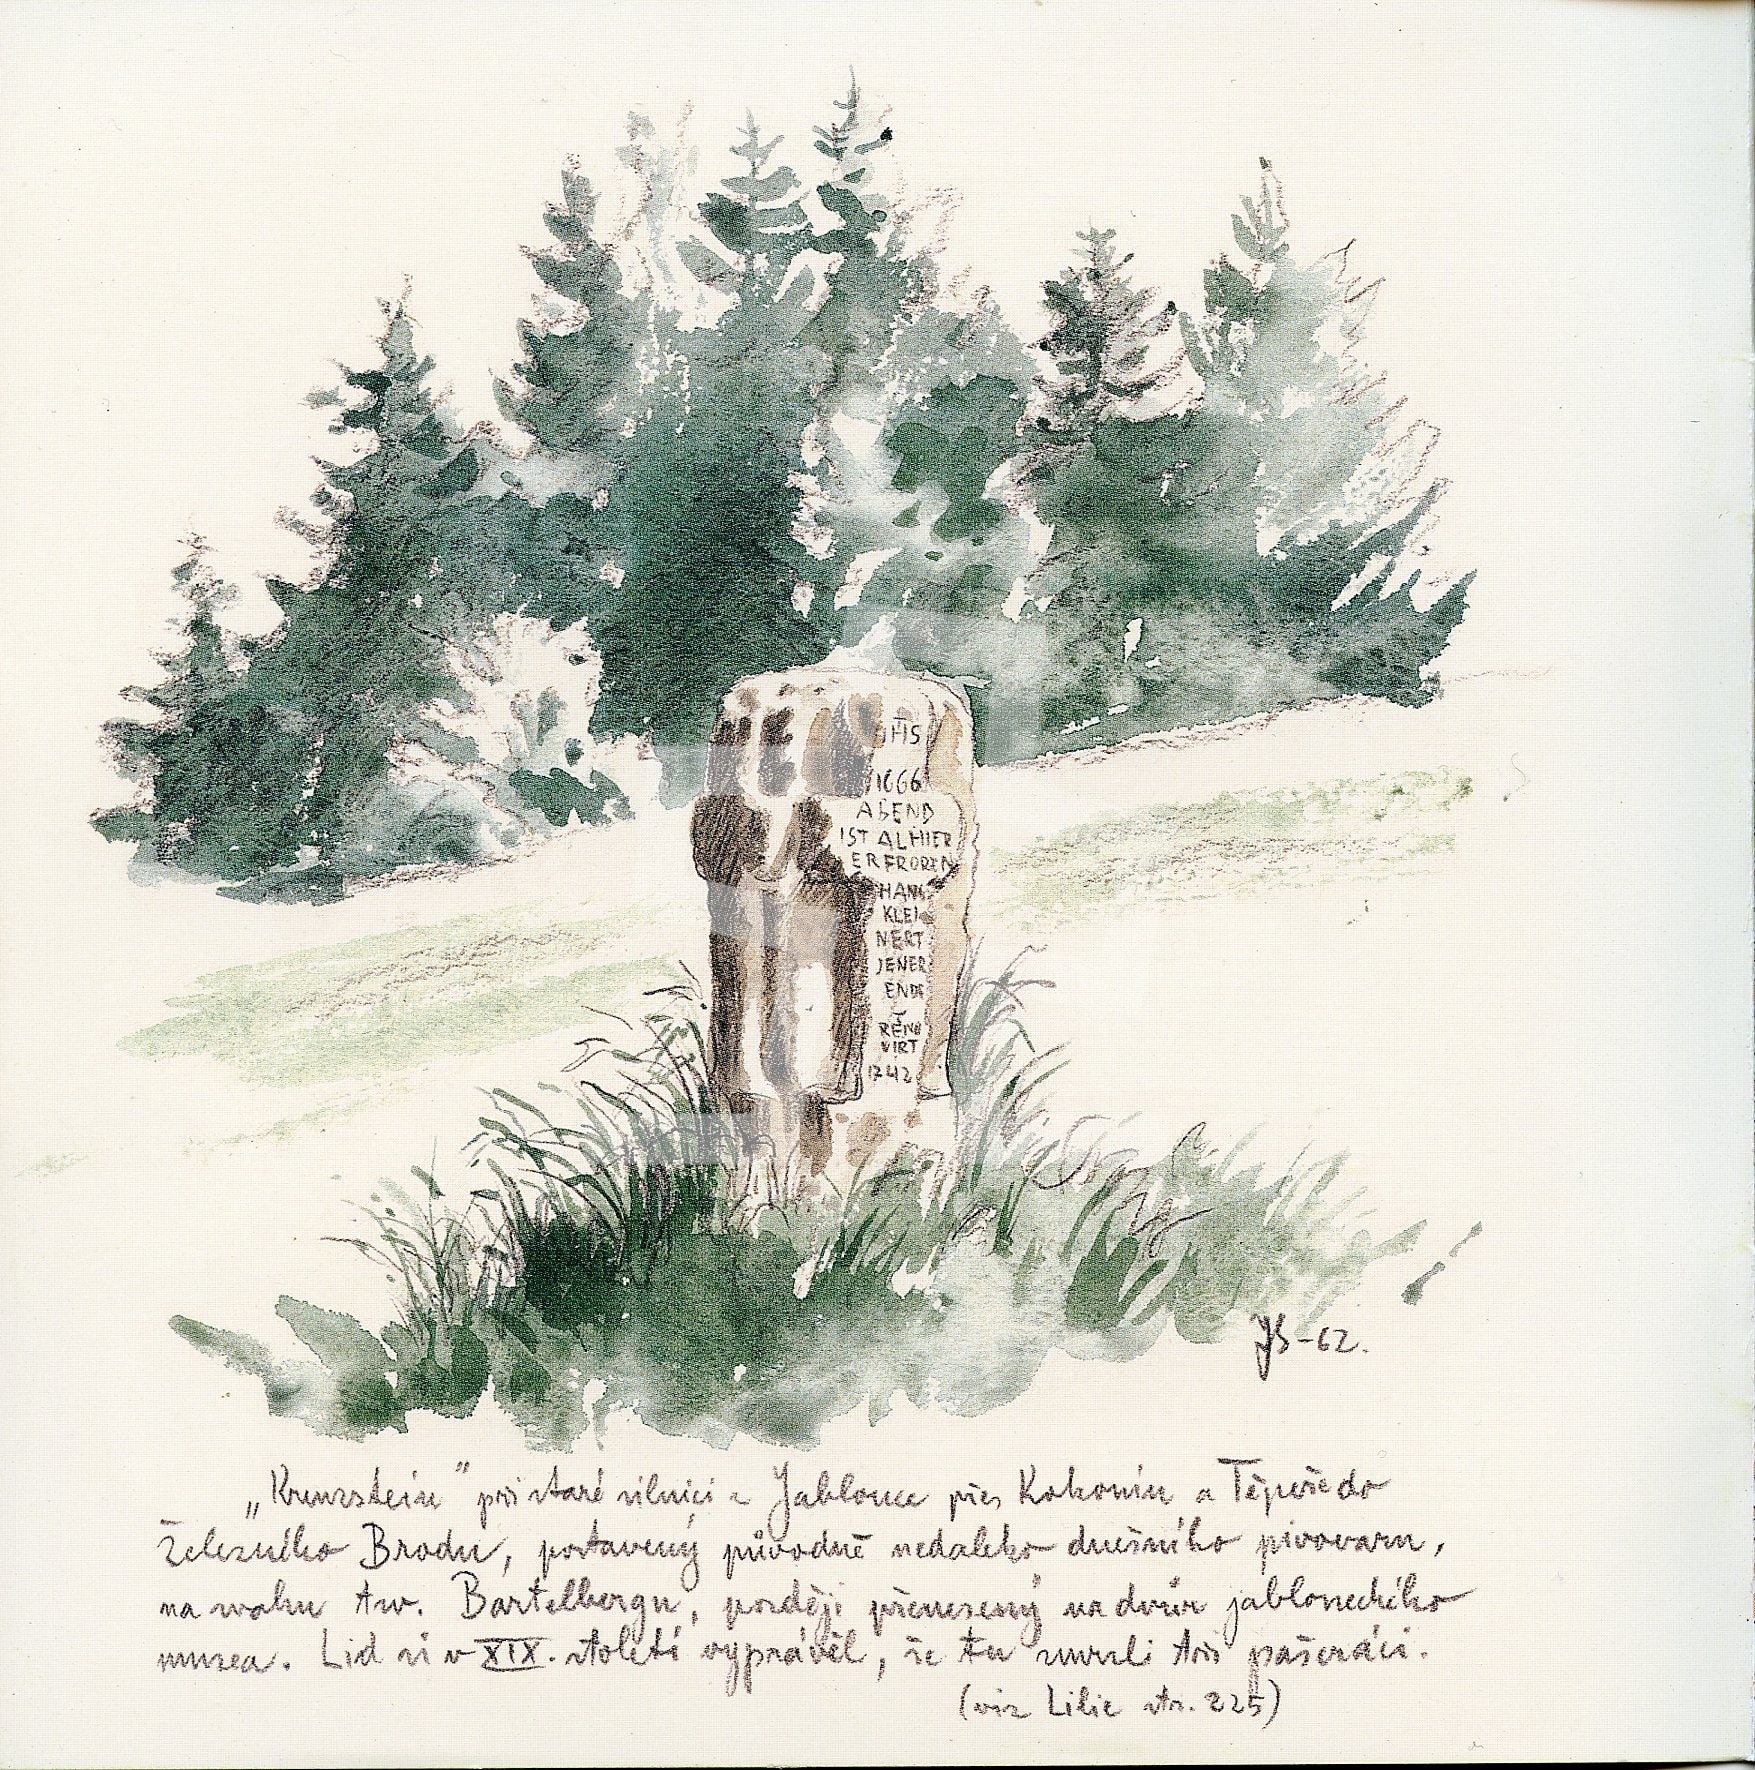 IHS
1666
ABEND
IST ALHIER
ERFROREN
HANS
KLEI
NERT
JENER
ENDE
RENO
VIRT
1742
JS-62.
„Kreuzstein" při staré silnici z Jablonce přes Kokonín a Těpeře do
Železného Brodu, postavený původně nedaleko dnešního pivovaru,
na svahu tzv. Bartelbergu, později přenesený na dvůr jabloneckého
musea. Lid si v XIX. století vyprávěl, že tu zmrzli tři pašeráci.
(viz Lilie str. 225)